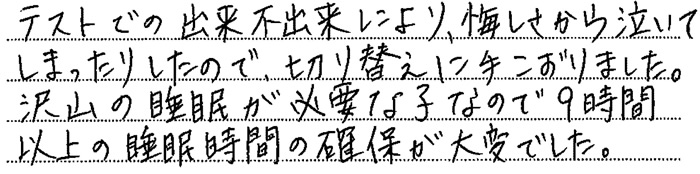 テストでの出来不出来により、悔しさから泣いて
しまったりしたので、切り替えに手こずりました。
沢山の睡眠が必要な子なので9時間
以上の睡眠時間の確保が大変でした。